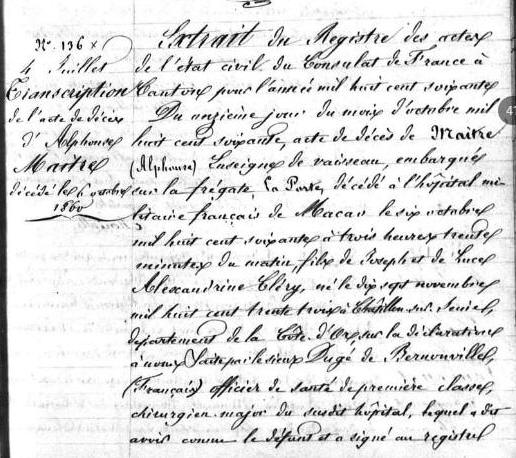 N.° 136
4 Juillet
Transcription
de l'acte de décès
d'Alphonse
Maitre
décédé le 6 octobre
1860
Extrait du Registre des actes
de l'état civil du Consulat de France à
Canton pour l'année mil huit cent soixante
Du onzième jour du mois d'octobre mil
huit cent soixante, acte de décès de Maitre
(Alphonse) Enseigne de vaisseau, embarqué
sur la frégate, La Perse, décédé à l'hôpital mi
litaire français de Macao le six octobre
mil huit cent soixante à trois heures trente
minutes du matin, fils de Joseph et de Luce
Alexandrine Cléry, né le dix sept novembre
mil huit cent trente trois à Chatillon sur Seine,
département de la Côte d'Or, sur la déclaration
à nous faite par le sieur Dugé de Bernonville,
(Français) officier de santé de première classe,
chirurgien major du susdit hôpital, lequel a dit
avoir connu le défunt et a signé au registre